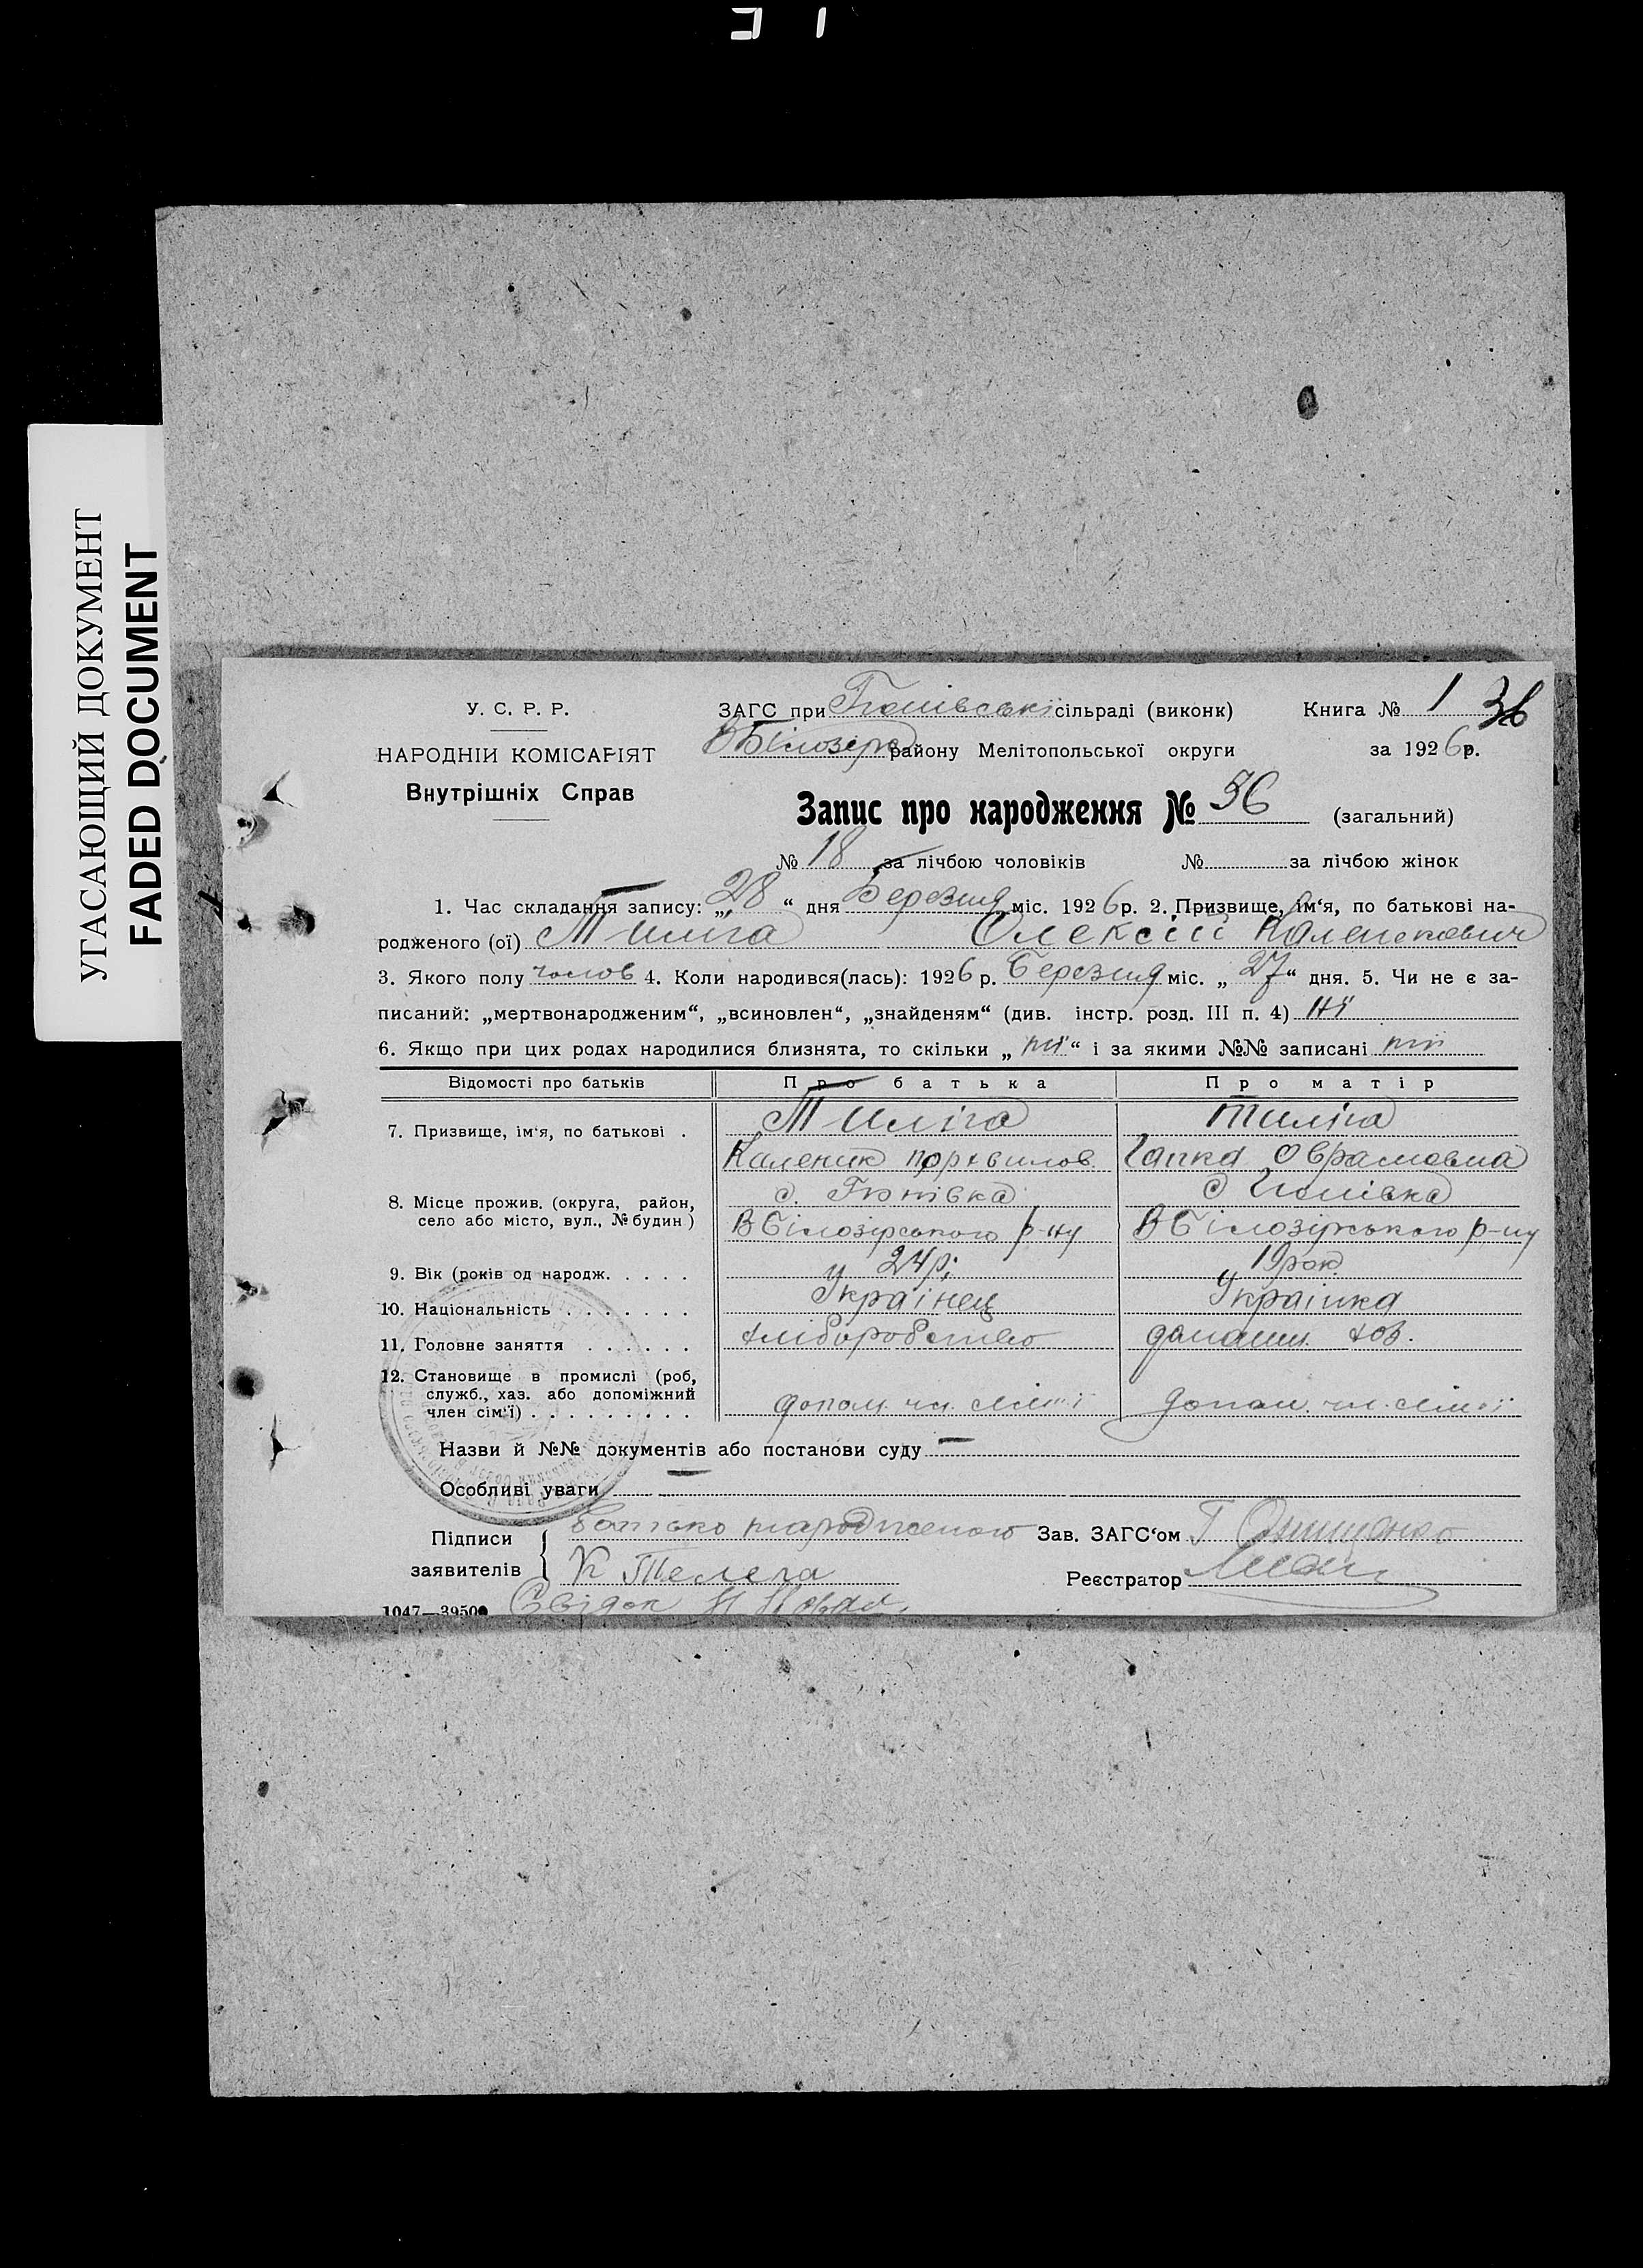 УГАСАЮЩИЙ ДОКУМЕНТ
FADED DOCUMENT
У. С. Р. Р.
НАРОДНІЙ КОМІСАРІЯТ
Внутрішніх Справ
ЗАГС при сільраді (виконк) Книга № 1 36
В Білозірк району Мелітопольської округи за 1926 р.
Запис про народження № 36 (загальний)
№ 18 за лічбою чоловіків № за лічбою жінок
1. Час складання запису: „28“ дня Березня міс. 1926 р. 2. Призвище, ім‘я, по батькові на-
родженого (ої) Тиліга Олексій Каленикович
3. Якого полу чолов 4. Коли народився(лась): 1926 р. Березня міс. „27“ дня. 5. Чи не є за-
писаний: „мертвонародженим“, „всиновлен“, „знайденям“ (див. інстр. розд. III п. 4) ні
6. Якщо при цих родах народилися близнята, то скільки „ні“ і за якими №№ записані ні
Відомості про батьків Про батька Про матір
7. Призвище, ім‘я, по батькові . Тиліга Тиліга
Каленик Гапка Оврамовна
8. Місце прожив. (округа, район, с.
село або місто, вул., № будин) В Білозірського р-ну В Білозірського р-ну
9. Вік (років од народж. . . . . 24 р; 19 рок
10. Національність . . . . . . . Українец Українка
11. Головне заняття . . . . . . хліборобство домашн. хоз.
12. Становище в промислі (роб,
служб., хаз. або допоміжний
член сім‘ї) . . . . . . . . . допом. чл. сімї допом. чл. сімї
Назви й №№ документів або постанови суду —
Особливі уваги —
Підписи батько народженого Зав. ЗАГС‘ом
заявителів К Телега Реєстратор
1047—39500 Свідок